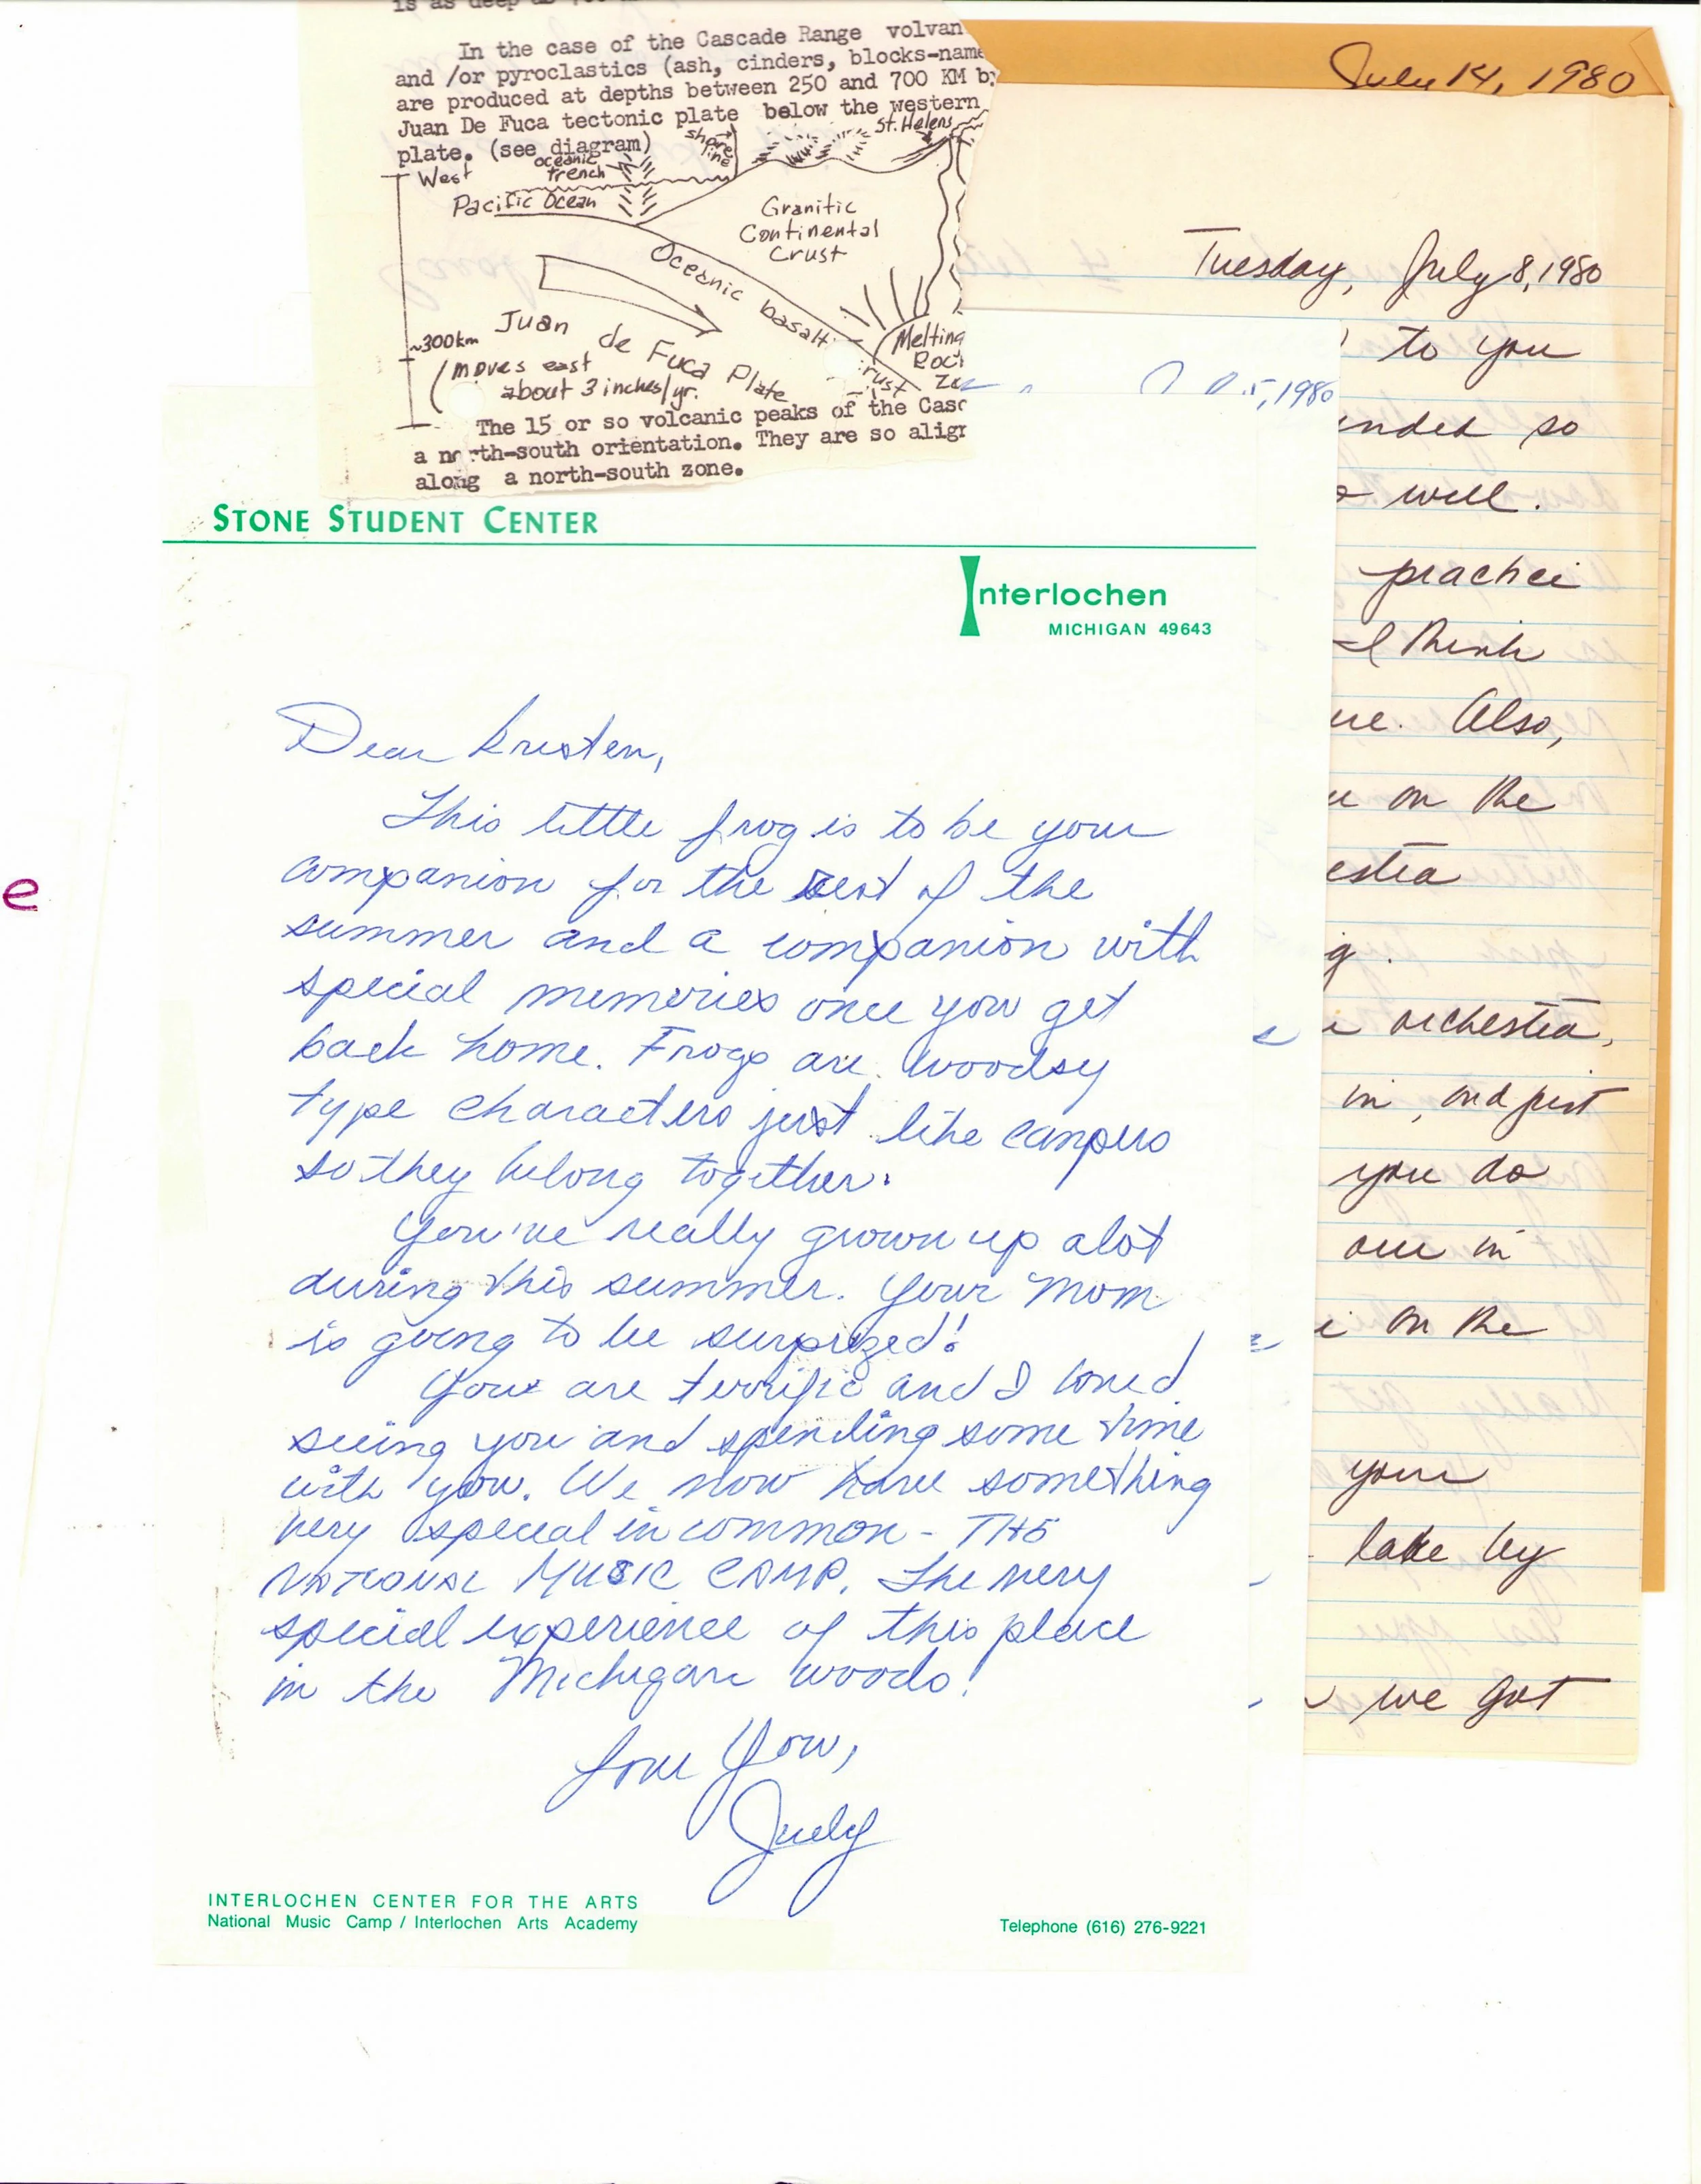 In the case of the Cascade Range volvan
and /or pyroclastics (ash, cinders, blocks-name
are produced at depths between 250 and 700 KM by
Juan De Fuca tectonic plate below the western
plate. (see diagram)
shore
line
St. Helens
West
oceanic
trench
Pacific Ocean
Granitic
Continental
Crust
Oceanic basalt
crust
Juan de Fuca Plate
~300km
(moves east
about 3 inches/yr.
Melting
Roc
Zo
The 15 or so volcanic peaks of the Casc
a north-south orientation. They are so align
along a north-south zone.
July 14, 1980
Tuesday, July 8, 1980
to you
5, 1980
ended so
o well.
practice
I think
Also,
on the
estra
g.
orchestra,
in, and just
you do
are in
on the
your
lake by
we got
e
STONE STUDENT CENTER
Interlochen
MICHIGAN 49643
Dear Kristen,
This little frog is to be your
companion for the rest of the
summer and a companion with
special memories once you get
back home. Frogs are woodsy
type characters just like campers
so they belong together.
You've really grown up alot
during this summer. Your Mom
is going to be surprized!
You are terrific and I loved
seeing you and spending some time
with you. We now have something
very special in common - THE
NATIONAL MUSIC CAMP. The very
special experience of this place
in the Michigan woods!
Love You,
Judy
INTERLOCHEN CENTER FOR THE ARTS
National Music Camp / Interlochen Arts Academy
Telephone (616) 276-9221